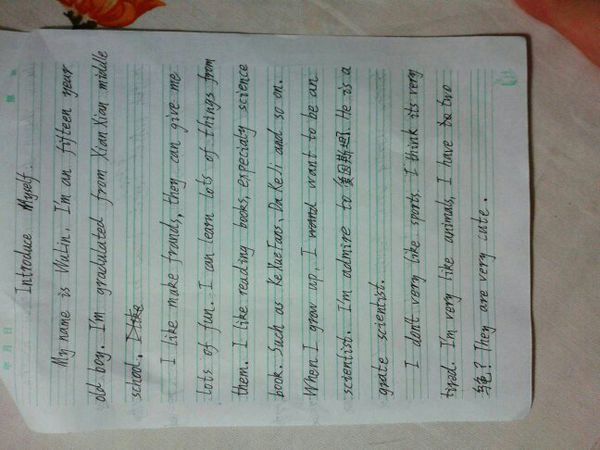 Introduce Myself
My name is WuLin. I'm an fifteen year
old boy. I'm gradulated from XianXian middle
school. I like
I like make frands, they can give me
lots of fun. I can learn lots of things from
them. I like reading books, expecialy science
book. Such as KeXueTans、DaKeJi and so on.
When I grow up, I want to be an
scientist. I'm admire to 爱因斯坦. He is a
grate scientist.
I don't very like sports. I think its very
tired. I'm very like animals, I have two
乌龟? They are very cute.
年 月 日